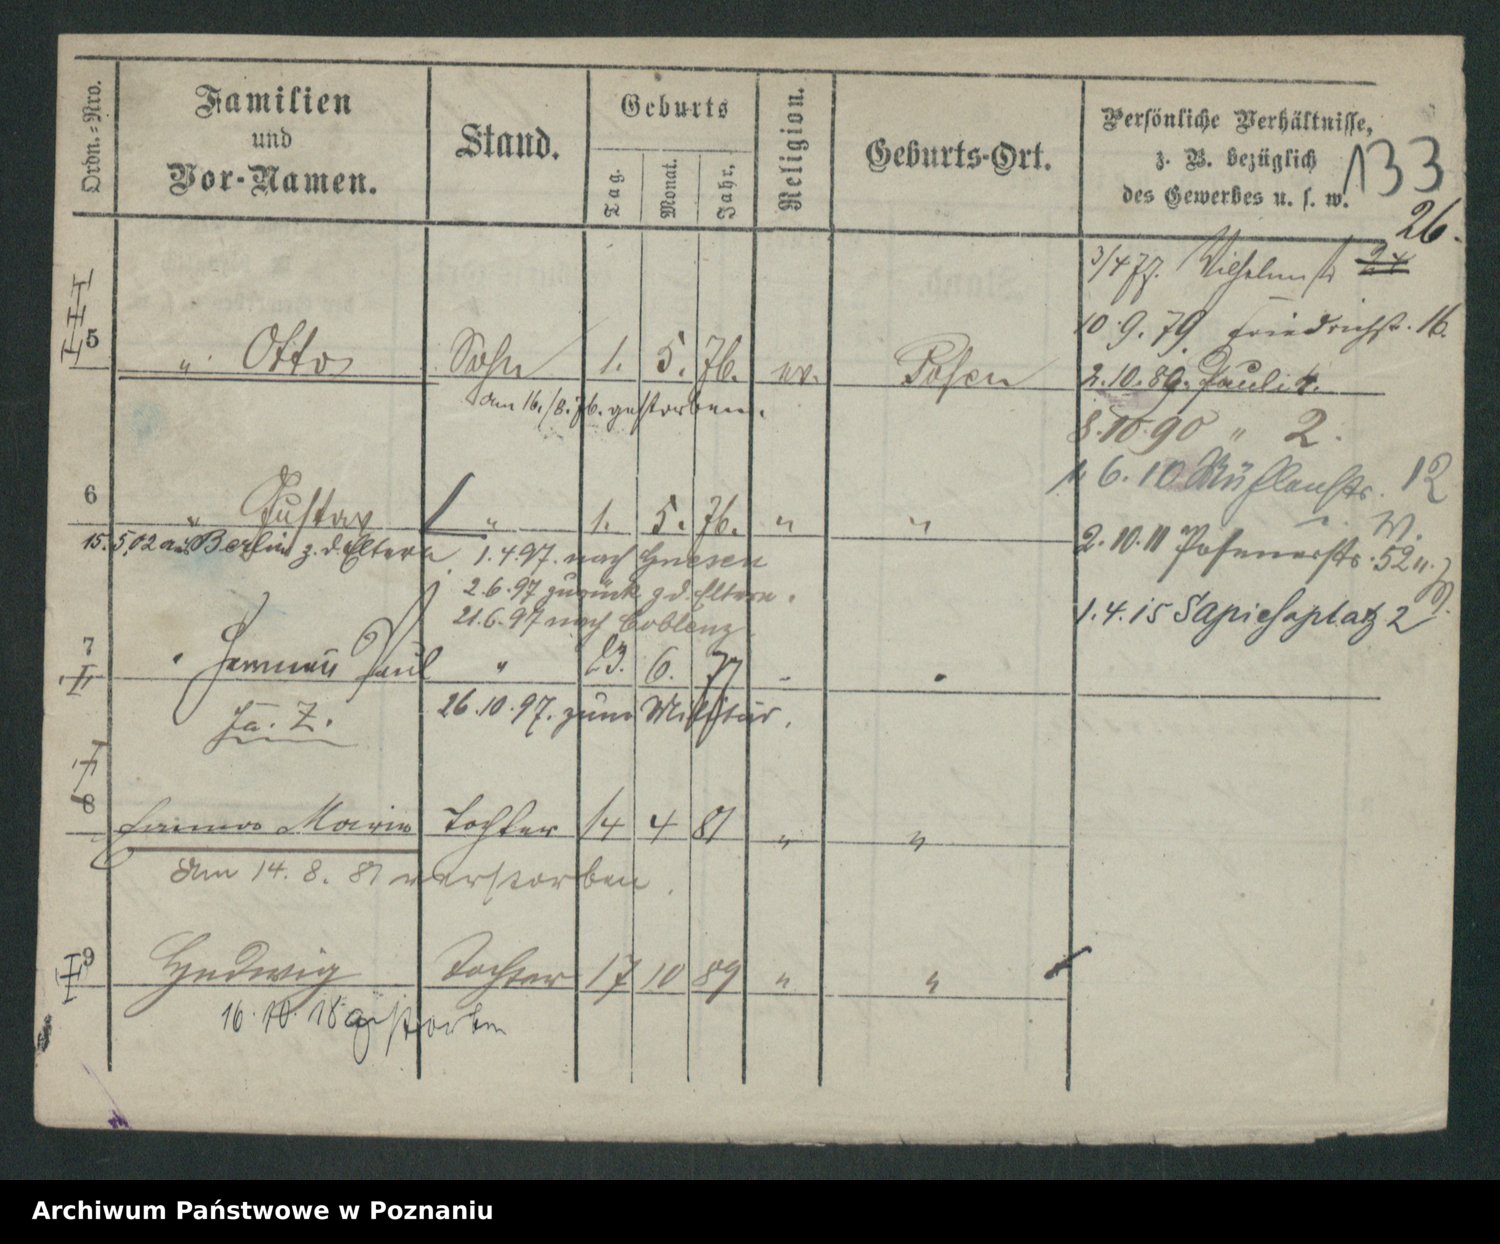 Ordn.=Nro.
Familien
und
Vor-Namen.
Stand.
Geburts
Tag.
Monat.
Jahr.
Religion.
Geburts-Ort.
Persönliche Verhältnisse,
z. B. bezüglich
des Gewerbes u. s. w.
133
26.
3/4 77. Wilhelmstr 24
10.9.79. Friedrichstr. 16.
5 " Otto Sohn 1. 5. 76. ev. Posen
2.10.89. Pauli 4.
am 16./8.76. gestorben.
8.10.90 " 2.
6.10 Mühlenstr. 12
6 " Gustav " 1. 5. 76. " "
15.5.02 aus Berlin z. d. Eltern
1.4.97. nach Gnesen
2.10.11 Posenerstr. 52
2.6.97 zurück z d. Eltern.
21.6.97 nach Coblenz
1.4.15 Sapiehaplatz 2
7 " Herman Paul " 23. 6. 77 " "
26.10.97. zum Militär.
8 Marie Tochter 14 4 81 " "
Am 14. 8. 81 verstorben.
9 Hedwig Tochter 17 10 89 " "
16.10.18 gestorben
Archiwum Państwowe w Poznaniu